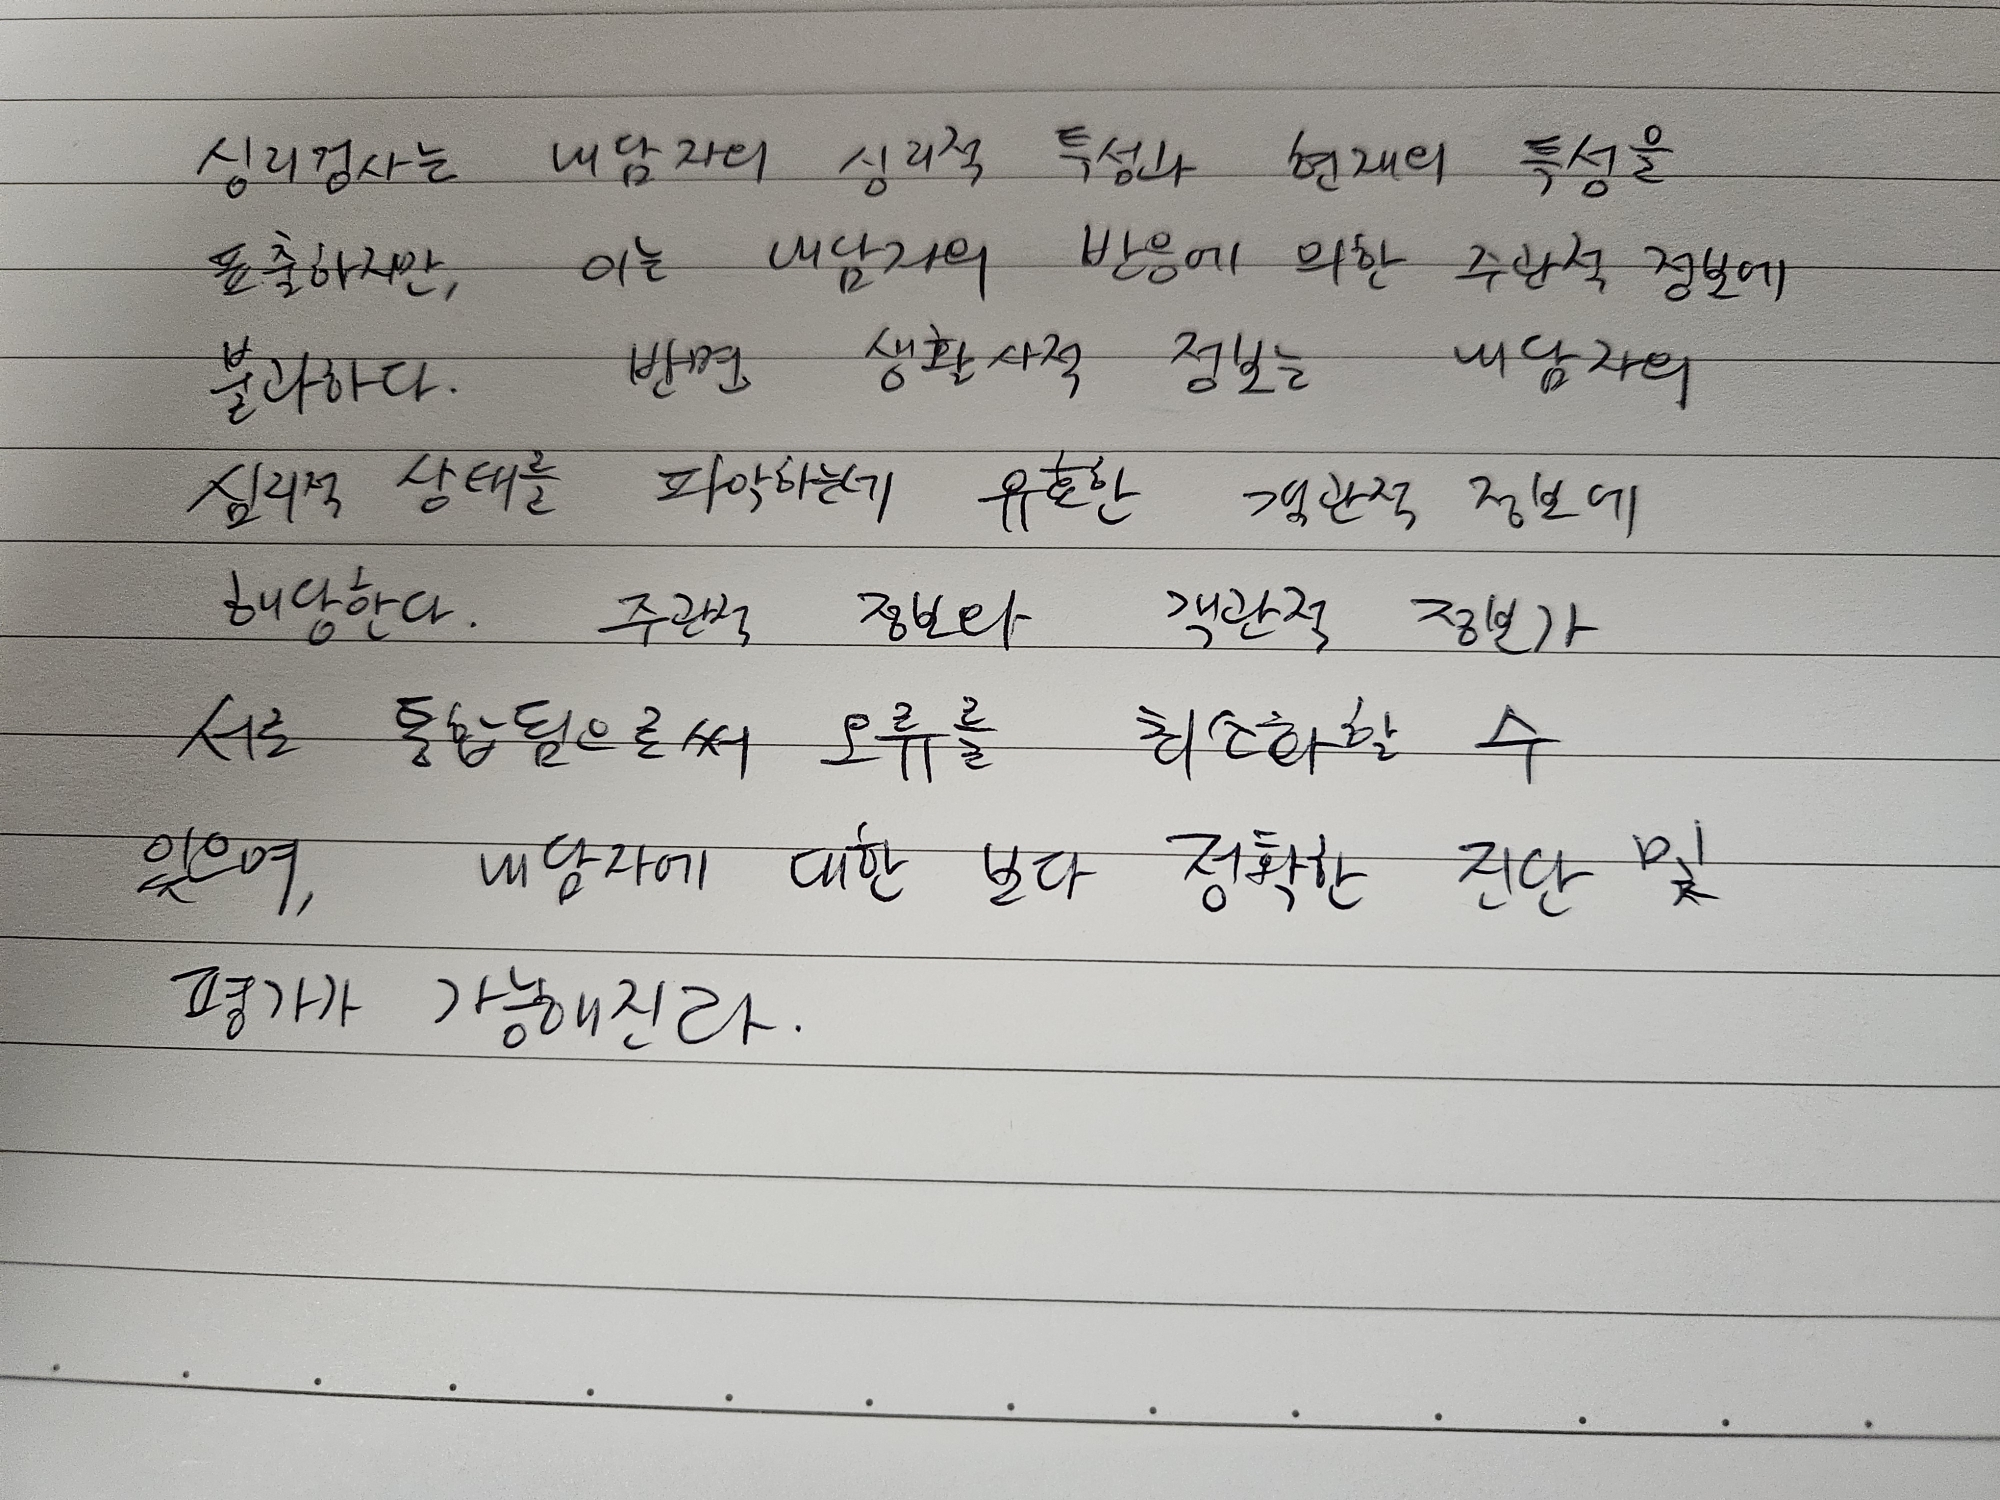 심리검사는 내담자의 심리적 특성과 현재의 특성을
표출하지만, 이는 내담자의 반응에 의한 주관적 정보에
불과하다. 반면 생활사적 정보는 내담자의
심리적 상태를 파악하는데 유효한 객관적 정보에
해당한다. 주관적 정보와 객관적 정보가
서로 통합됨으로써 오류를 최소화할 수
있으며, 내담자에 대한 보다 정확한 진단 및
평가가 가능해진다.